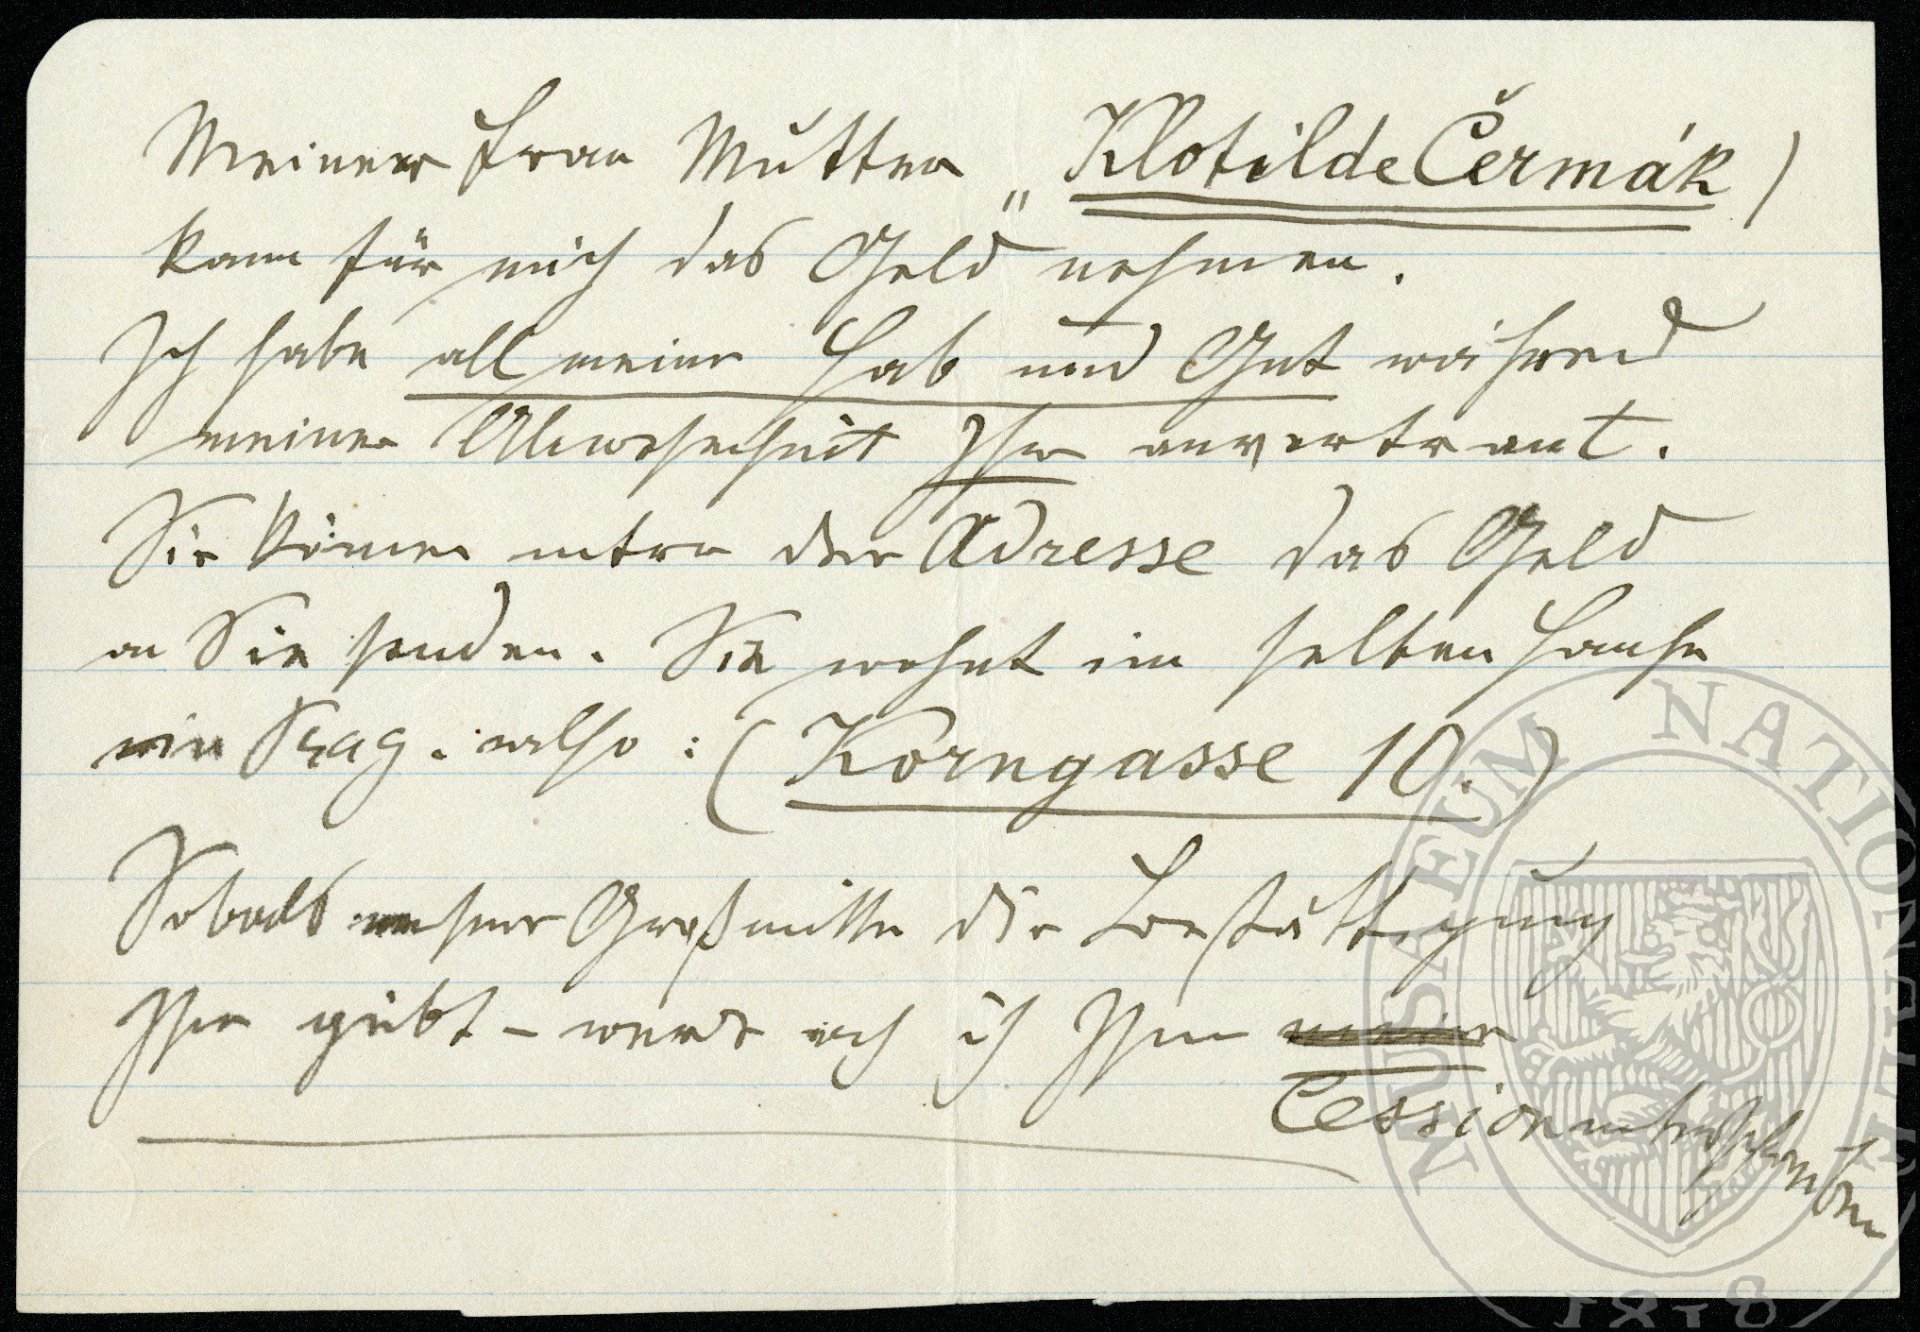 Meiner Frau Mutter „Klotilde Čermák)
kann für mich das Geld nehmen.
Ich habe all meine Hab und Gut während
meiner Abwesenheit Ihr anvertraut.
Sie könen unter der Adresse das Geld
an Sie senden. Sie wohnt im selben Hause
in Prag. also: (Korngasse 10.)
Sobald unsere Großmutter die Bestättigung
Ihr gibt – werde ich Ihr
Cession unterschreiben
MUSAEUM NATIONALE
1818